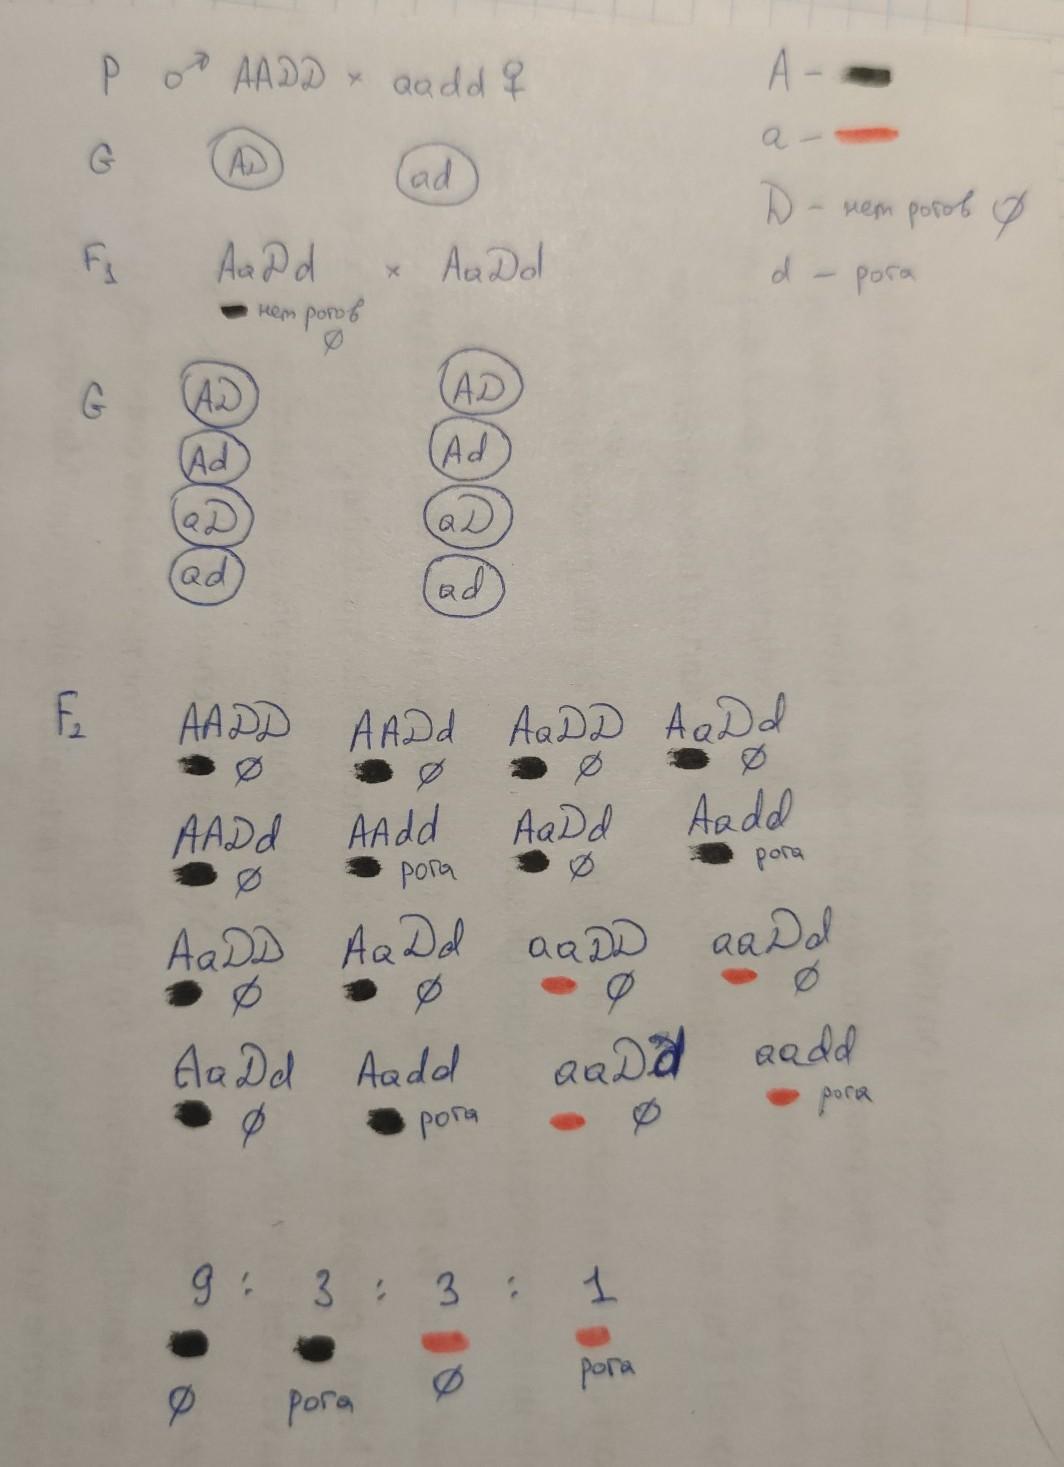 P ♂ AADD × aadd ♀
A –
a –
D – нет рогов ∅
d – рога
G AD ad
F₁ AaDd × AaDd
нет рогов
∅
G AD AD
Ad Ad
aD aD
ad ad
F₂ AADD AADd AaDD AaDd
∅ ∅ ∅ ∅
AADd AAdd AaDd Aadd
∅ рога ∅ рога
AaDD AaDd aaDD aaDd
∅ ∅ ∅ ∅
AaDd Aadd aaDd aadd
∅ рога ∅ рога
9 : 3 : 3 : 1
∅ рога ∅ рога